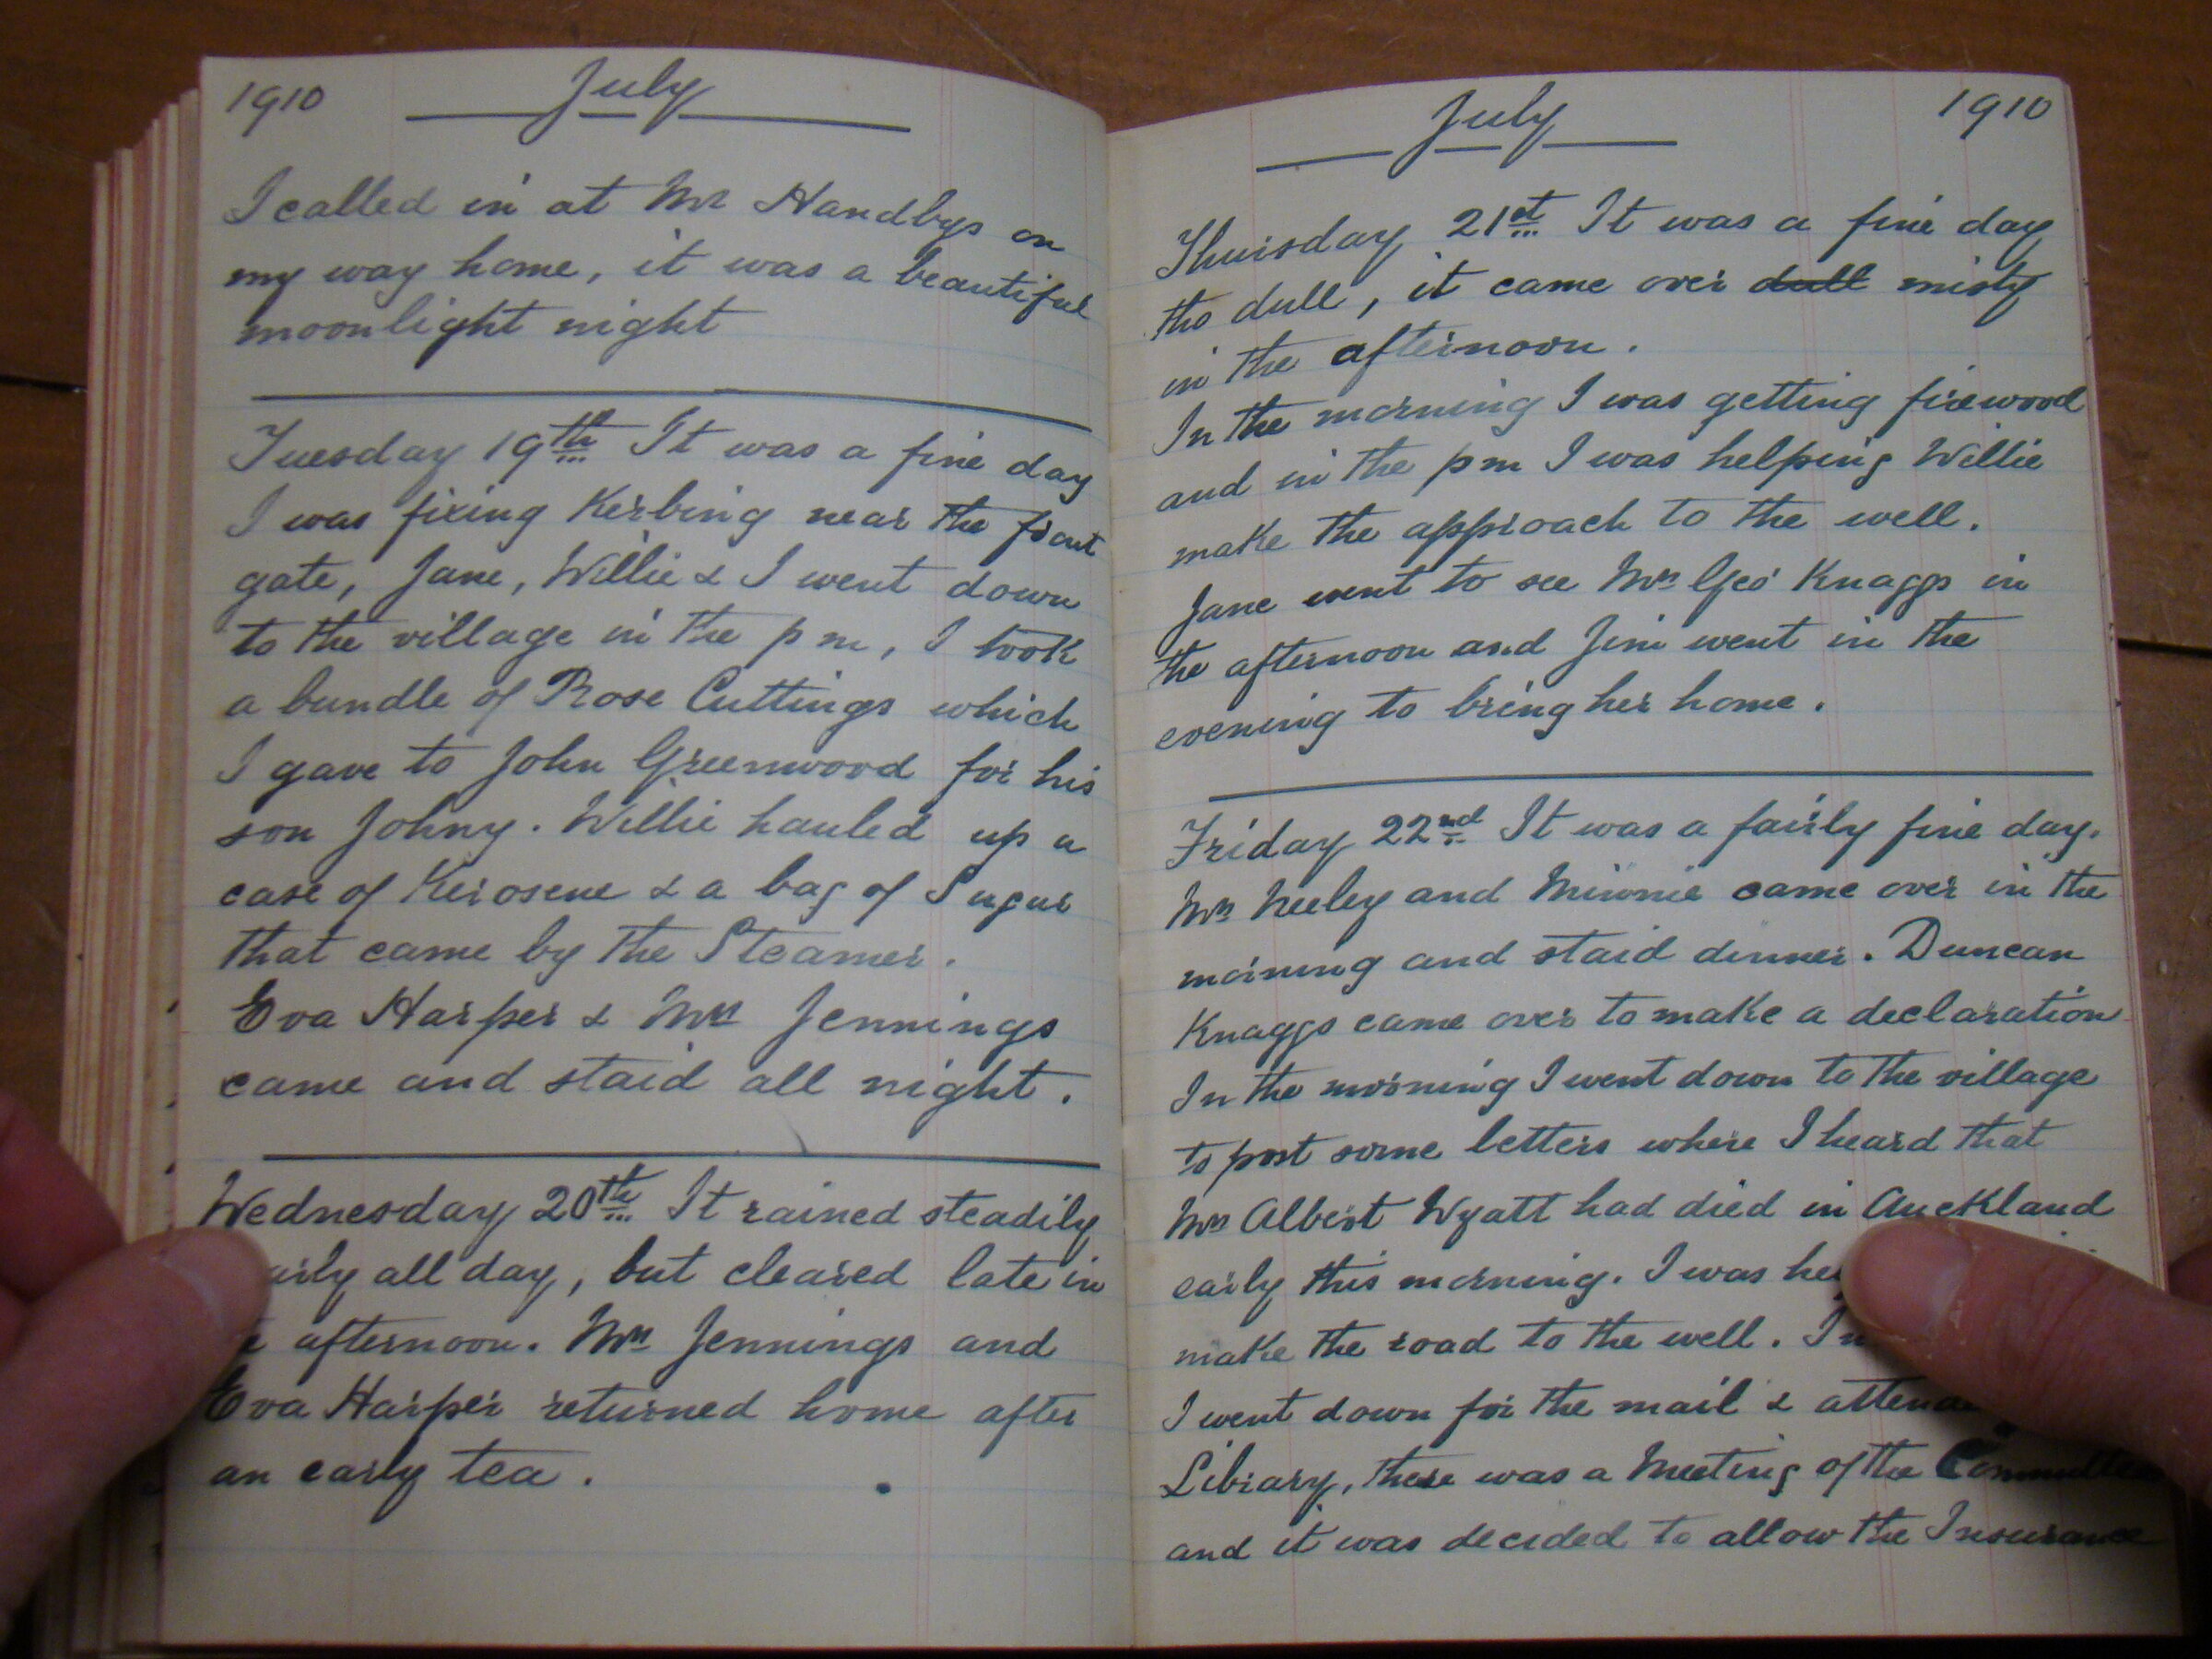 1910 July
I called in at Mr Handbys on
my way home, it was a beautiful
moonlight night
Tuesday 19th It was a fine day
I was fixing Kerbing near the front
gate, Jane, Willie & I went down
to the village in the pm, I took
a bundle of Rose Cuttings which
I gave to John Greenwood for his
son Johny. Willie hauled up a
case of Kerosene & a bag of Sugar
that came by the Steamer.
Eva Harper & Mrs Jennings
came and staid all night.
Wednesday 20th It rained steadily
all day, but cleared late in
afternoon. Mrs Jennings and
Eva Harper returned home after
an early tea.
July 1910
Thursday 21st It was a fine day
tho dull, it came over dull misty
in the afternoon.
In the morning I was getting firewood
and in the pm I was helping Willie
make the approach to the well.
Jane went to see Mrs Geo Knaggs in
the afternoon and Jim went in the
evening to bring her home.
Friday 22nd It was a fairly fine day.
Mrs Neeley and Minnie came over in the
morning and staid dinner. Duncan
Knaggs came over to make a declaration
In the morning I went down to the village
to post some letters where I heard that
Mrs Albert Wyatt had died in Auckland
early this morning. I was
make the road to the well.
I went down for the mail &
Library, there was a Meeting of the Committee
and it was decided to allow the Insurance